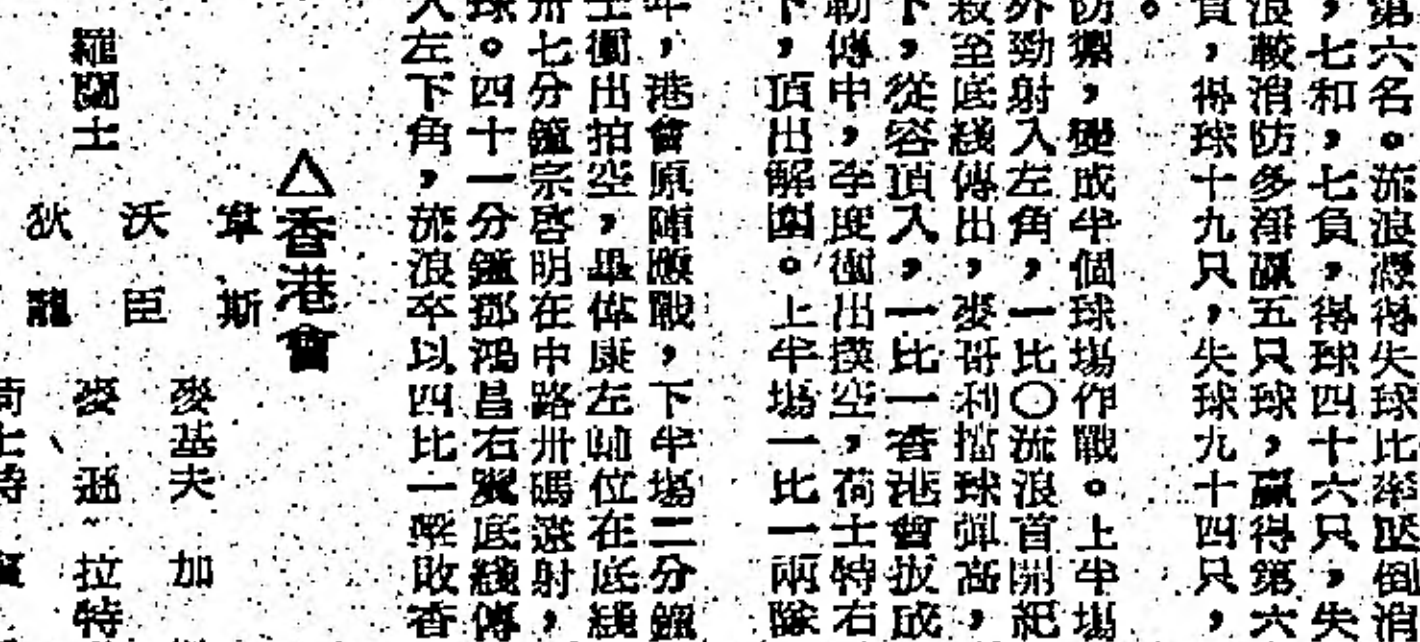 第六名。流浪憑得失球比率壓倒消
，七和，七負，得球四十六只，失
浪較消防多淨贏五只球，贏得第六
負，得球十九只，失球九十四只，
。
防禦，變成半個球場作戰。上半場
外勁射入左角，一比〇流浪首開紀
殺至底綫傳出，麥哥利擋球彈高，
下，從容頂入，一比一香港會扳成
勒傳中，李度衝出撲空，荷士特右
下，頂出解圍。上半場一比一兩隊
年，港會原陣應戰，下半場二分鐘
士衝出拍空，畢偉康左輔位在底綫
卅七分鐘宗啓明在中路卅碼遠射，
球。四十一分鐘鄧鴻昌右翼底綫傳
入左下角，流浪卒以四比一擊敗香
△香港會
韋斯
沃臣
狄龍
羅蘭士
麥基夫 加
麥遜 拉特
荷士特